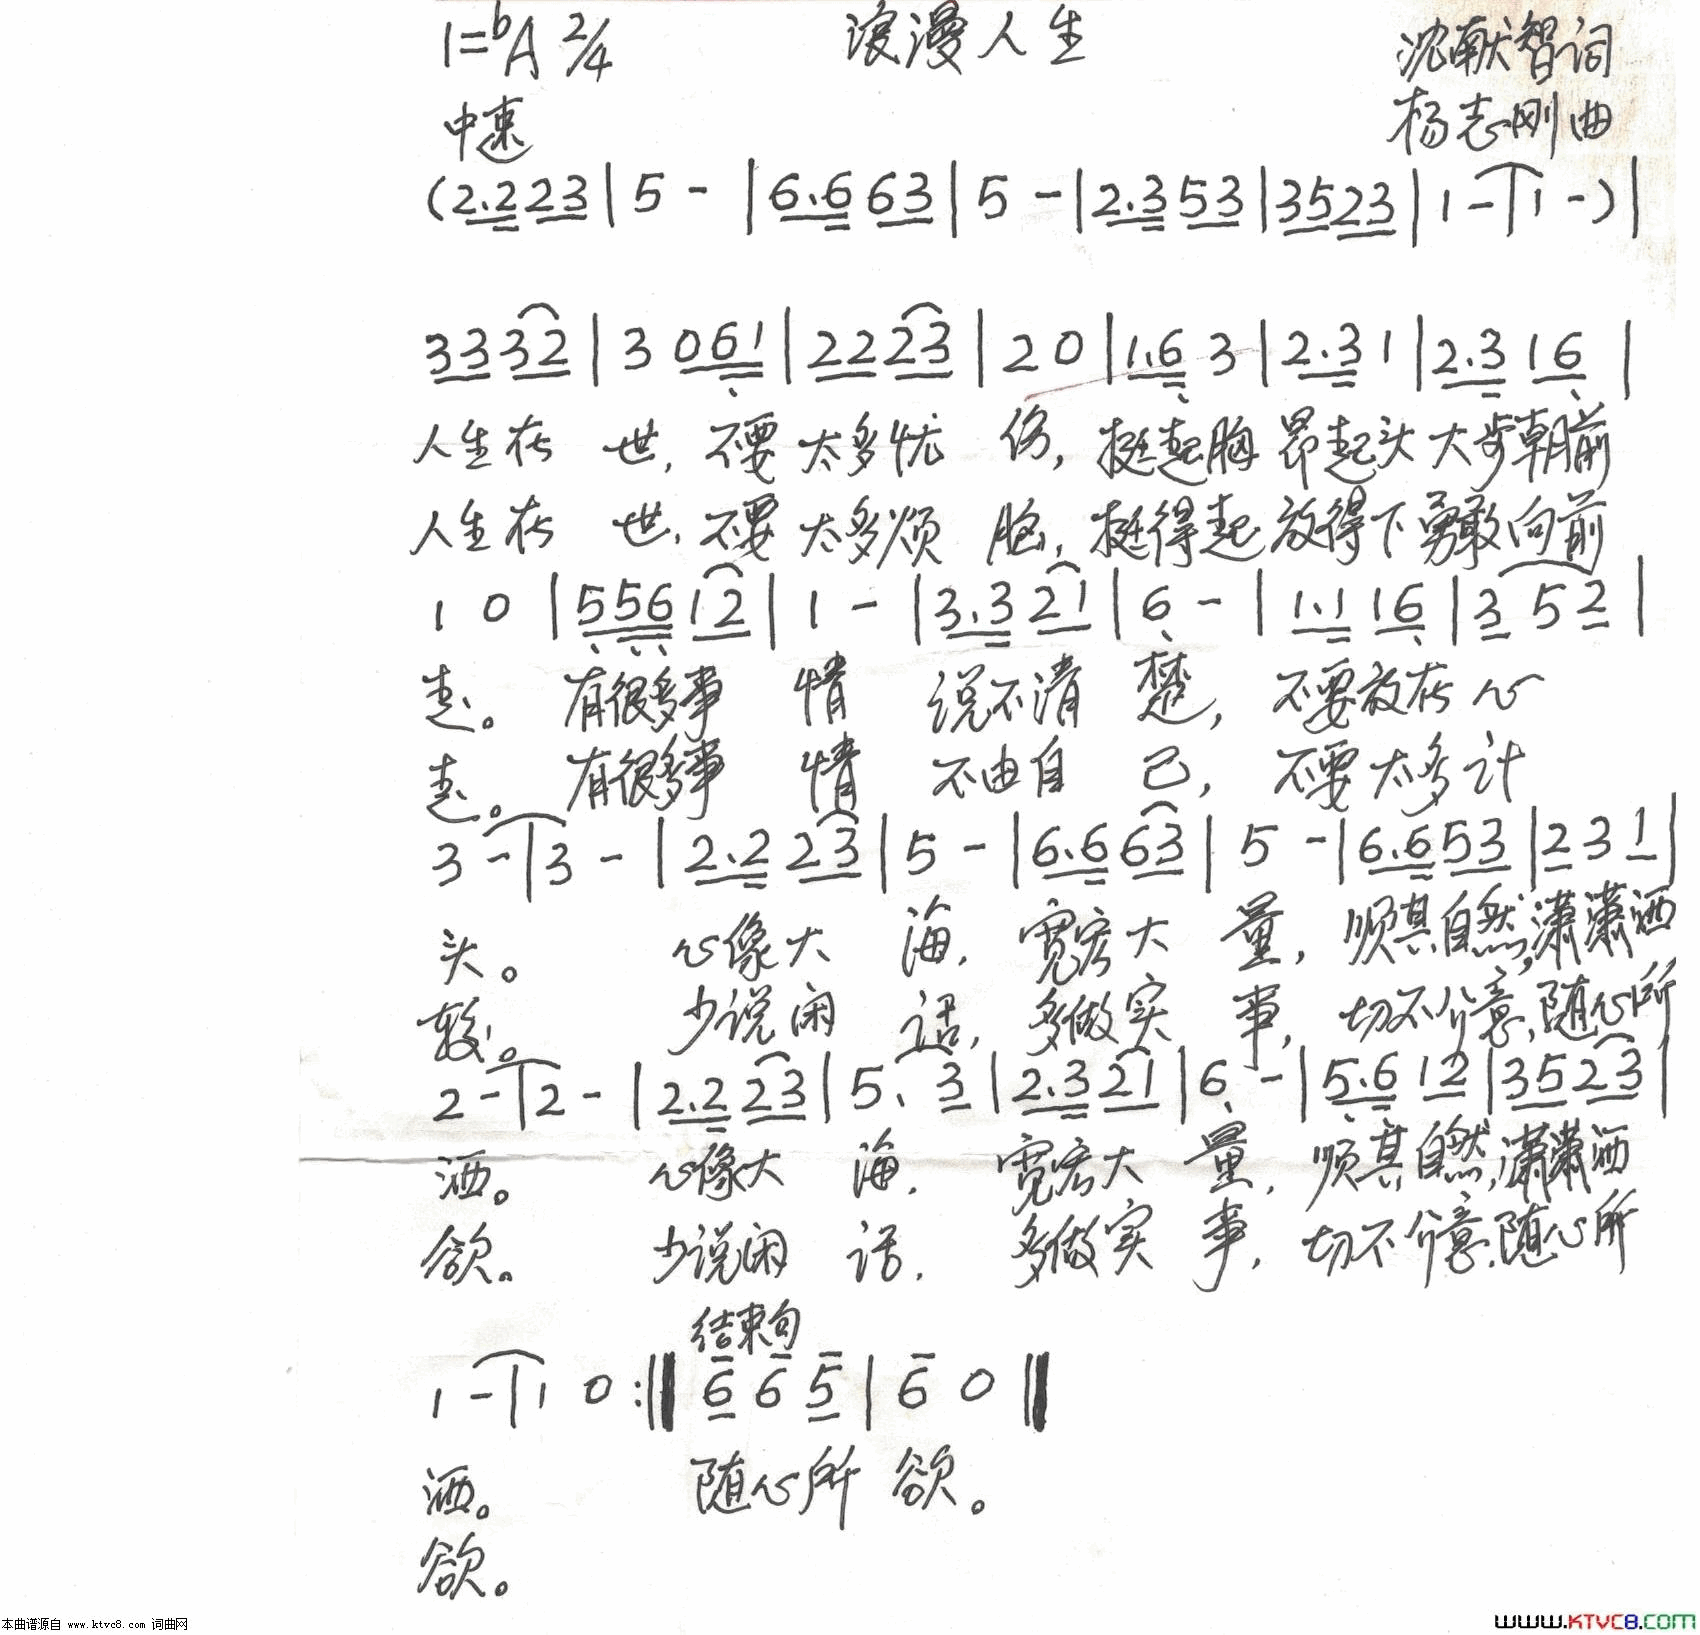 1=ᵇA 2/4 浪漫人生 沈献智词
中速 杨志刚曲
(2.2 23 | 5 - | 6.6 63 | 5 - | 2.3 53 | 35 23 | 1 - | 1 -) |
33 32 | 3 0 61 | 22 23 | 2 0 | 1.6 3 | 2.3 1 | 2.3 16 |
人生在 世, 不要 太多忧 伤, 挺起胸 昂起头 大步朝前
人生在 世, 不要 太多烦 恼, 挺得起 放得下 勇敢向前
1 0 | 556 12 | 1 - | 3.3 21 | 6 - | 1.1 16 | 3 5 2 |
走。 有很多事 情 说不清 楚, 不要放在 心
走。 有很多事 情 不由自 己, 不要太多 计
3 - | 3 - | 2.2 23 | 5 - | 6.6 63 | 5 - | 6.6 53 | 2 3 1 |
头。 心像大 海, 宽宏大 量, 顺其自然,潇潇洒
较。 少说闲 话, 多做实 事, 切不介意,随心所
2 - | 2 - | 2.2 23 | 5. 3 | 2.3 21 | 6 - | 5.6 12 | 35 23 |
洒。 心像大 海, 宽宏大 量, 顺其自然,潇潇洒
欲。 少说闲 话, 多做实 事, 切不介意,随心所
结束句
1 - | 1 0 :‖ 6 6 5 | 6 0 ‖
洒。 随心所 欲。
欲。
本曲谱源自 www.ktvc8.com 词曲网 www.KTVC8.COM